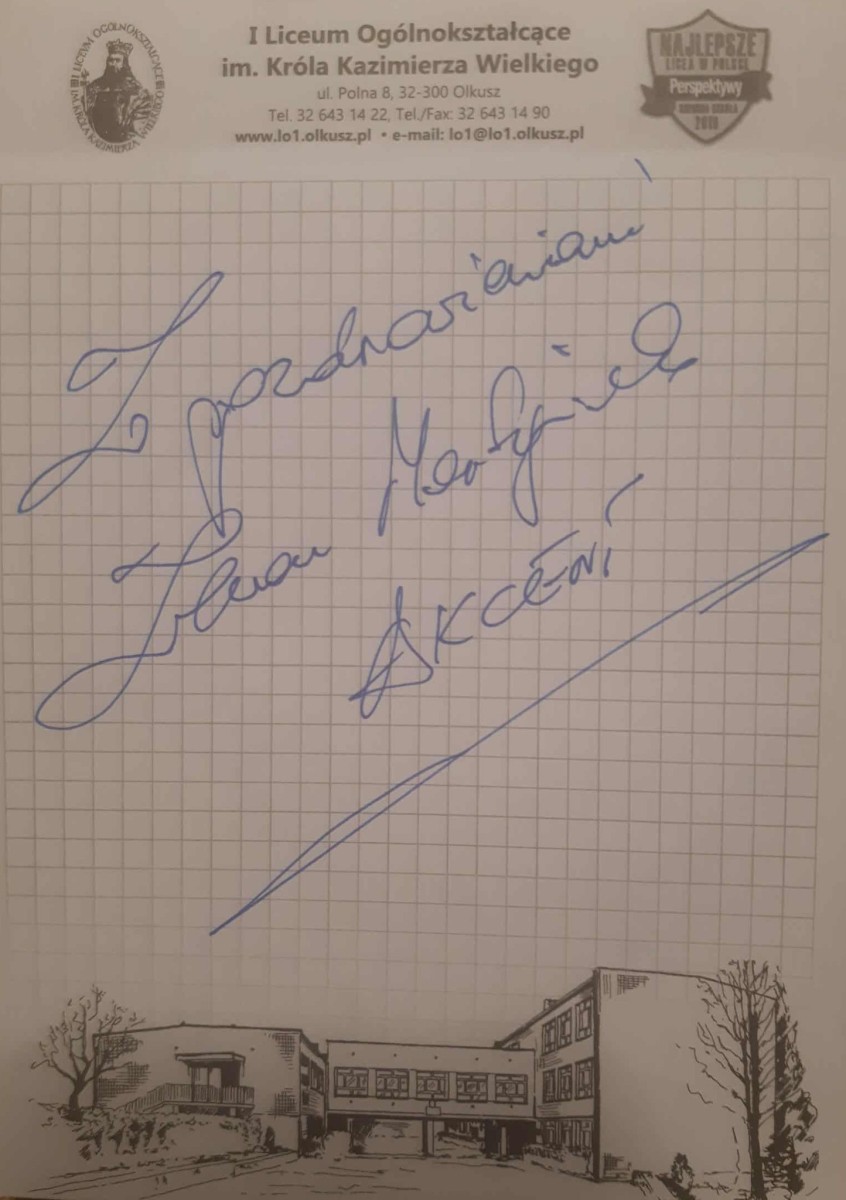 I LICEUM OGÓLNOKSZTAŁCĄCE
IM. KRÓLA KAZIMIERZA WIELKIEGO
I Liceum Ogólnokształcące
im. Króla Kazimierza Wielkiego
ul. Polna 8, 32-300 Olkusz
Tel. 32 643 14 22, Tel./Fax: 32 643 14 90
www.lo1.olkusz.pl • e-mail: lo1@lo1.olkusz.pl
NAJLEPSZE
LICEA W POLSCE
Perspektywy
Z pozdrowieniami
Zenon Martyniuk
AKCENT